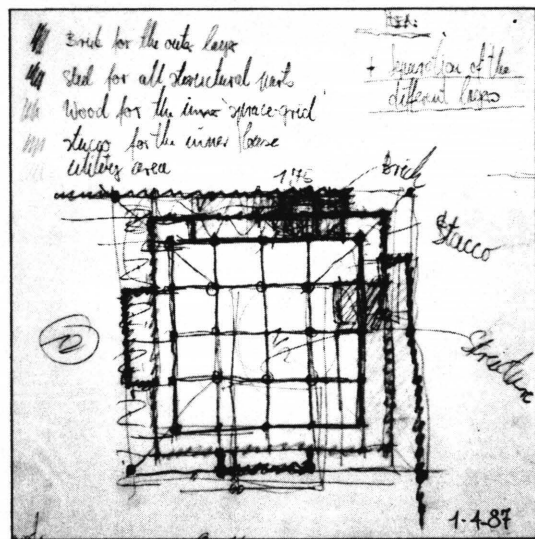 Brick for the outer layer
steel for all structural parts
Wood for the inner space-grid
stucco for the inner house
utility area
IDEA:
+ Separation of the
different layers
1,75
Brick
Stucco
Structure
1-4-87